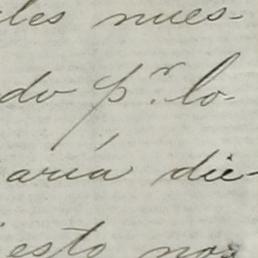 les nues-
do pr. lo-
aría die-
esto no